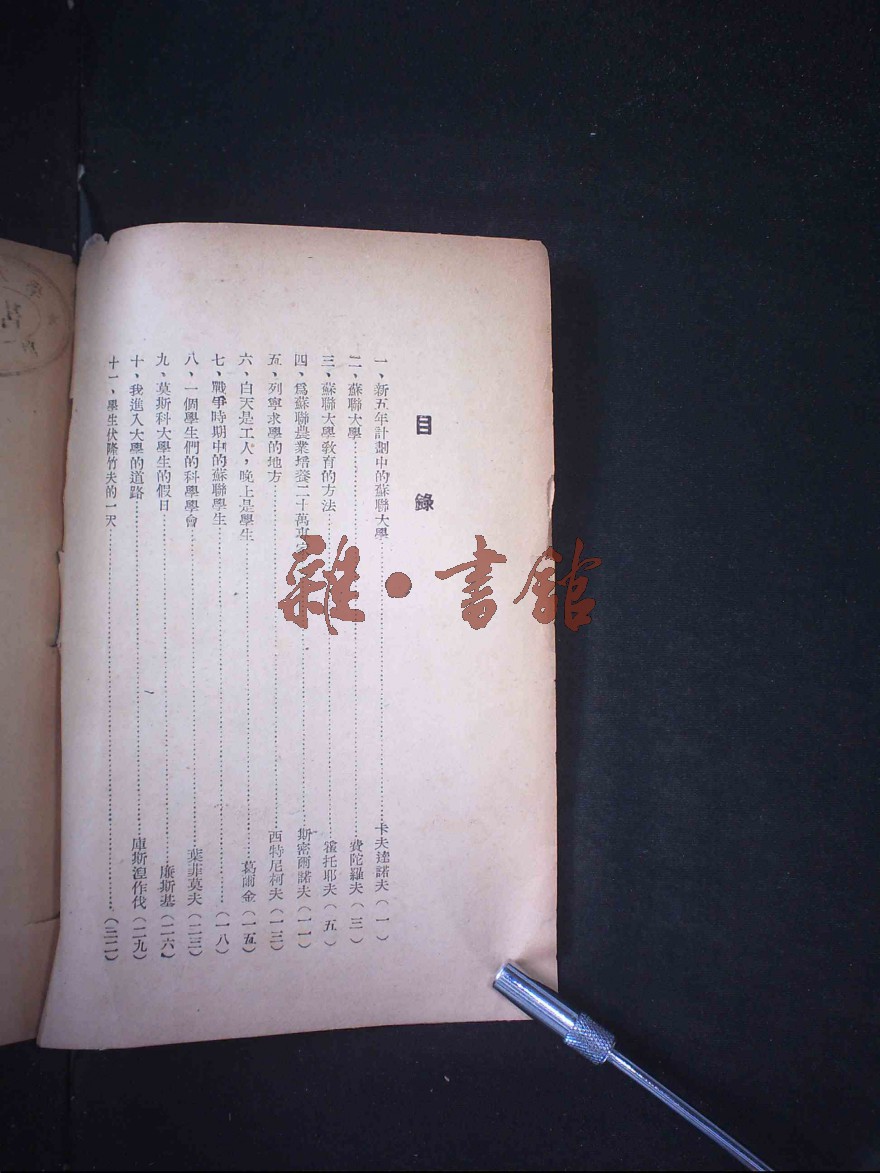 目錄
一、新五年計劃中的蘇聯大學………卡夫達諾夫(一)
二、蘇聯大學………費陀羅夫(三)
三、蘇聯大學敎育的方法………霍托耶夫(五)
四、爲蘇聯農業培養二十萬專………斯密爾諾夫(一一)
五、列寧求學的地方………西特尼柯夫(一三)
六、白天是工人，晚上是學生………葛爾金(一五)
七、戰爭時期中的蘇聯學生………(一八)
八、一個學生們的科學學會………葉菲莫夫(二三)
九、莫斯科大學生的假日………廉斯基(二六)
十、我進入大學的道路………庫斯湼作伐(二九)
十一、學生伏隆竹夫的一天………(三二)
雜·書館